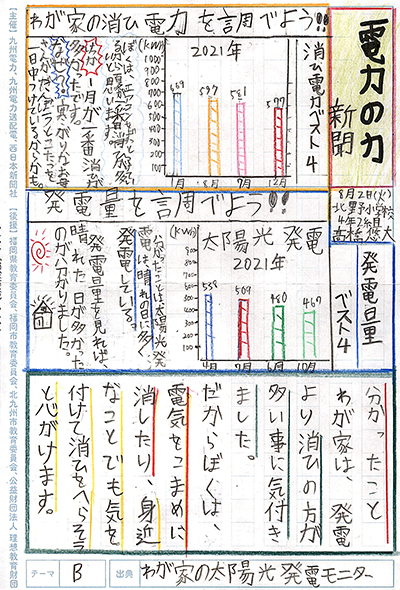 電力の力
新聞
8月2日(火)
北野小学校
4年2組
高橋悠大
わが家の消ひ電力を調べよう!!
消ひ電力ベスト4
2021年
(kW)
1000
900
800
700
600
500
400
300
200
100
669
597
581
577
1月
8月
7月
12月
1月が一番消ひが
多かったです。
一日中つけているからかも。
発電量を調べよう!!
発電量
ベスト4
太陽光発電
2021年
(kW)
538
509
480
467
4月
10月
分かったことは太陽光発
電は、晴れの日に多く
発電している。
発電量を見れば、
晴れた日が多かった
のが分かりました。
分かったこと
わが家は、発電
より消ひの方が
多い事に気付き
ました。
だからぼくは、
電気をこまめに
消したり、身近
なことでも気を
付けて消ひをへらそう
と心がけます。
テーマ
B
出典
わが家の太陽光発電モニター
【主催】九州電力、九州電力送配電、西日本新聞社
【後援】福岡県教育委員会、福岡市教育委員会、北九州市教育委員会、公益財団法人 理想教育財団